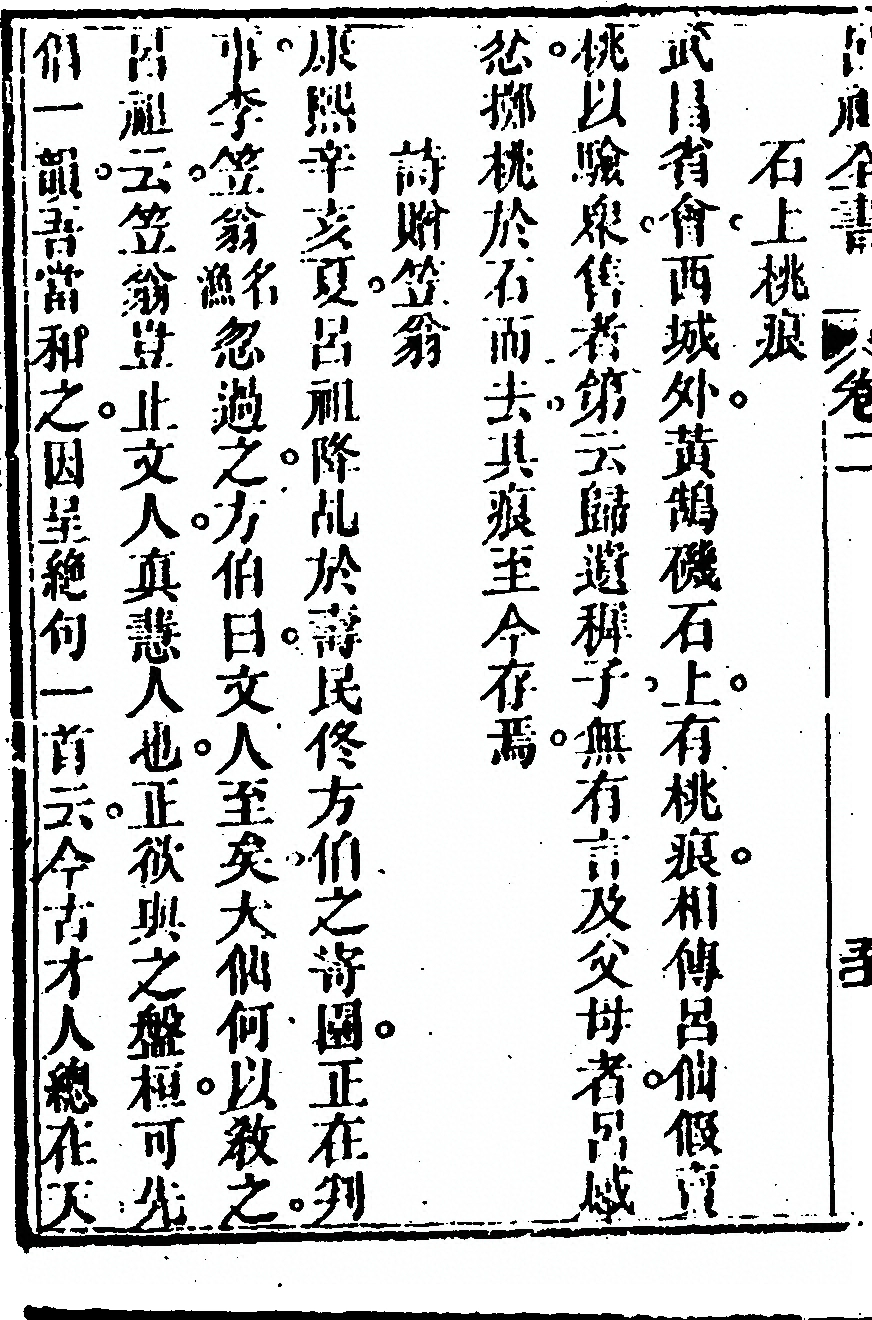 呂祖全書 卷二
石上桃痕
武昌省會西城外黃鵠磯石上有桃痕相傳呂仙假賣
桃以驗衆售者第云歸遺穉子無有言及父母者呂慽
忿擲桃於石而去其痕至今存焉
詩贈笠翁
康熙辛亥夏呂祖降乩於壽民佟方伯之寄園正在判
事李笠翁名漁忽過之方伯曰文人至矣大仙何以敎之
呂祖云笠翁豈止文人真慧人也正欲與之盤桓可先
倡一韻吾當和之因呈絶句一首云今古才人總在天